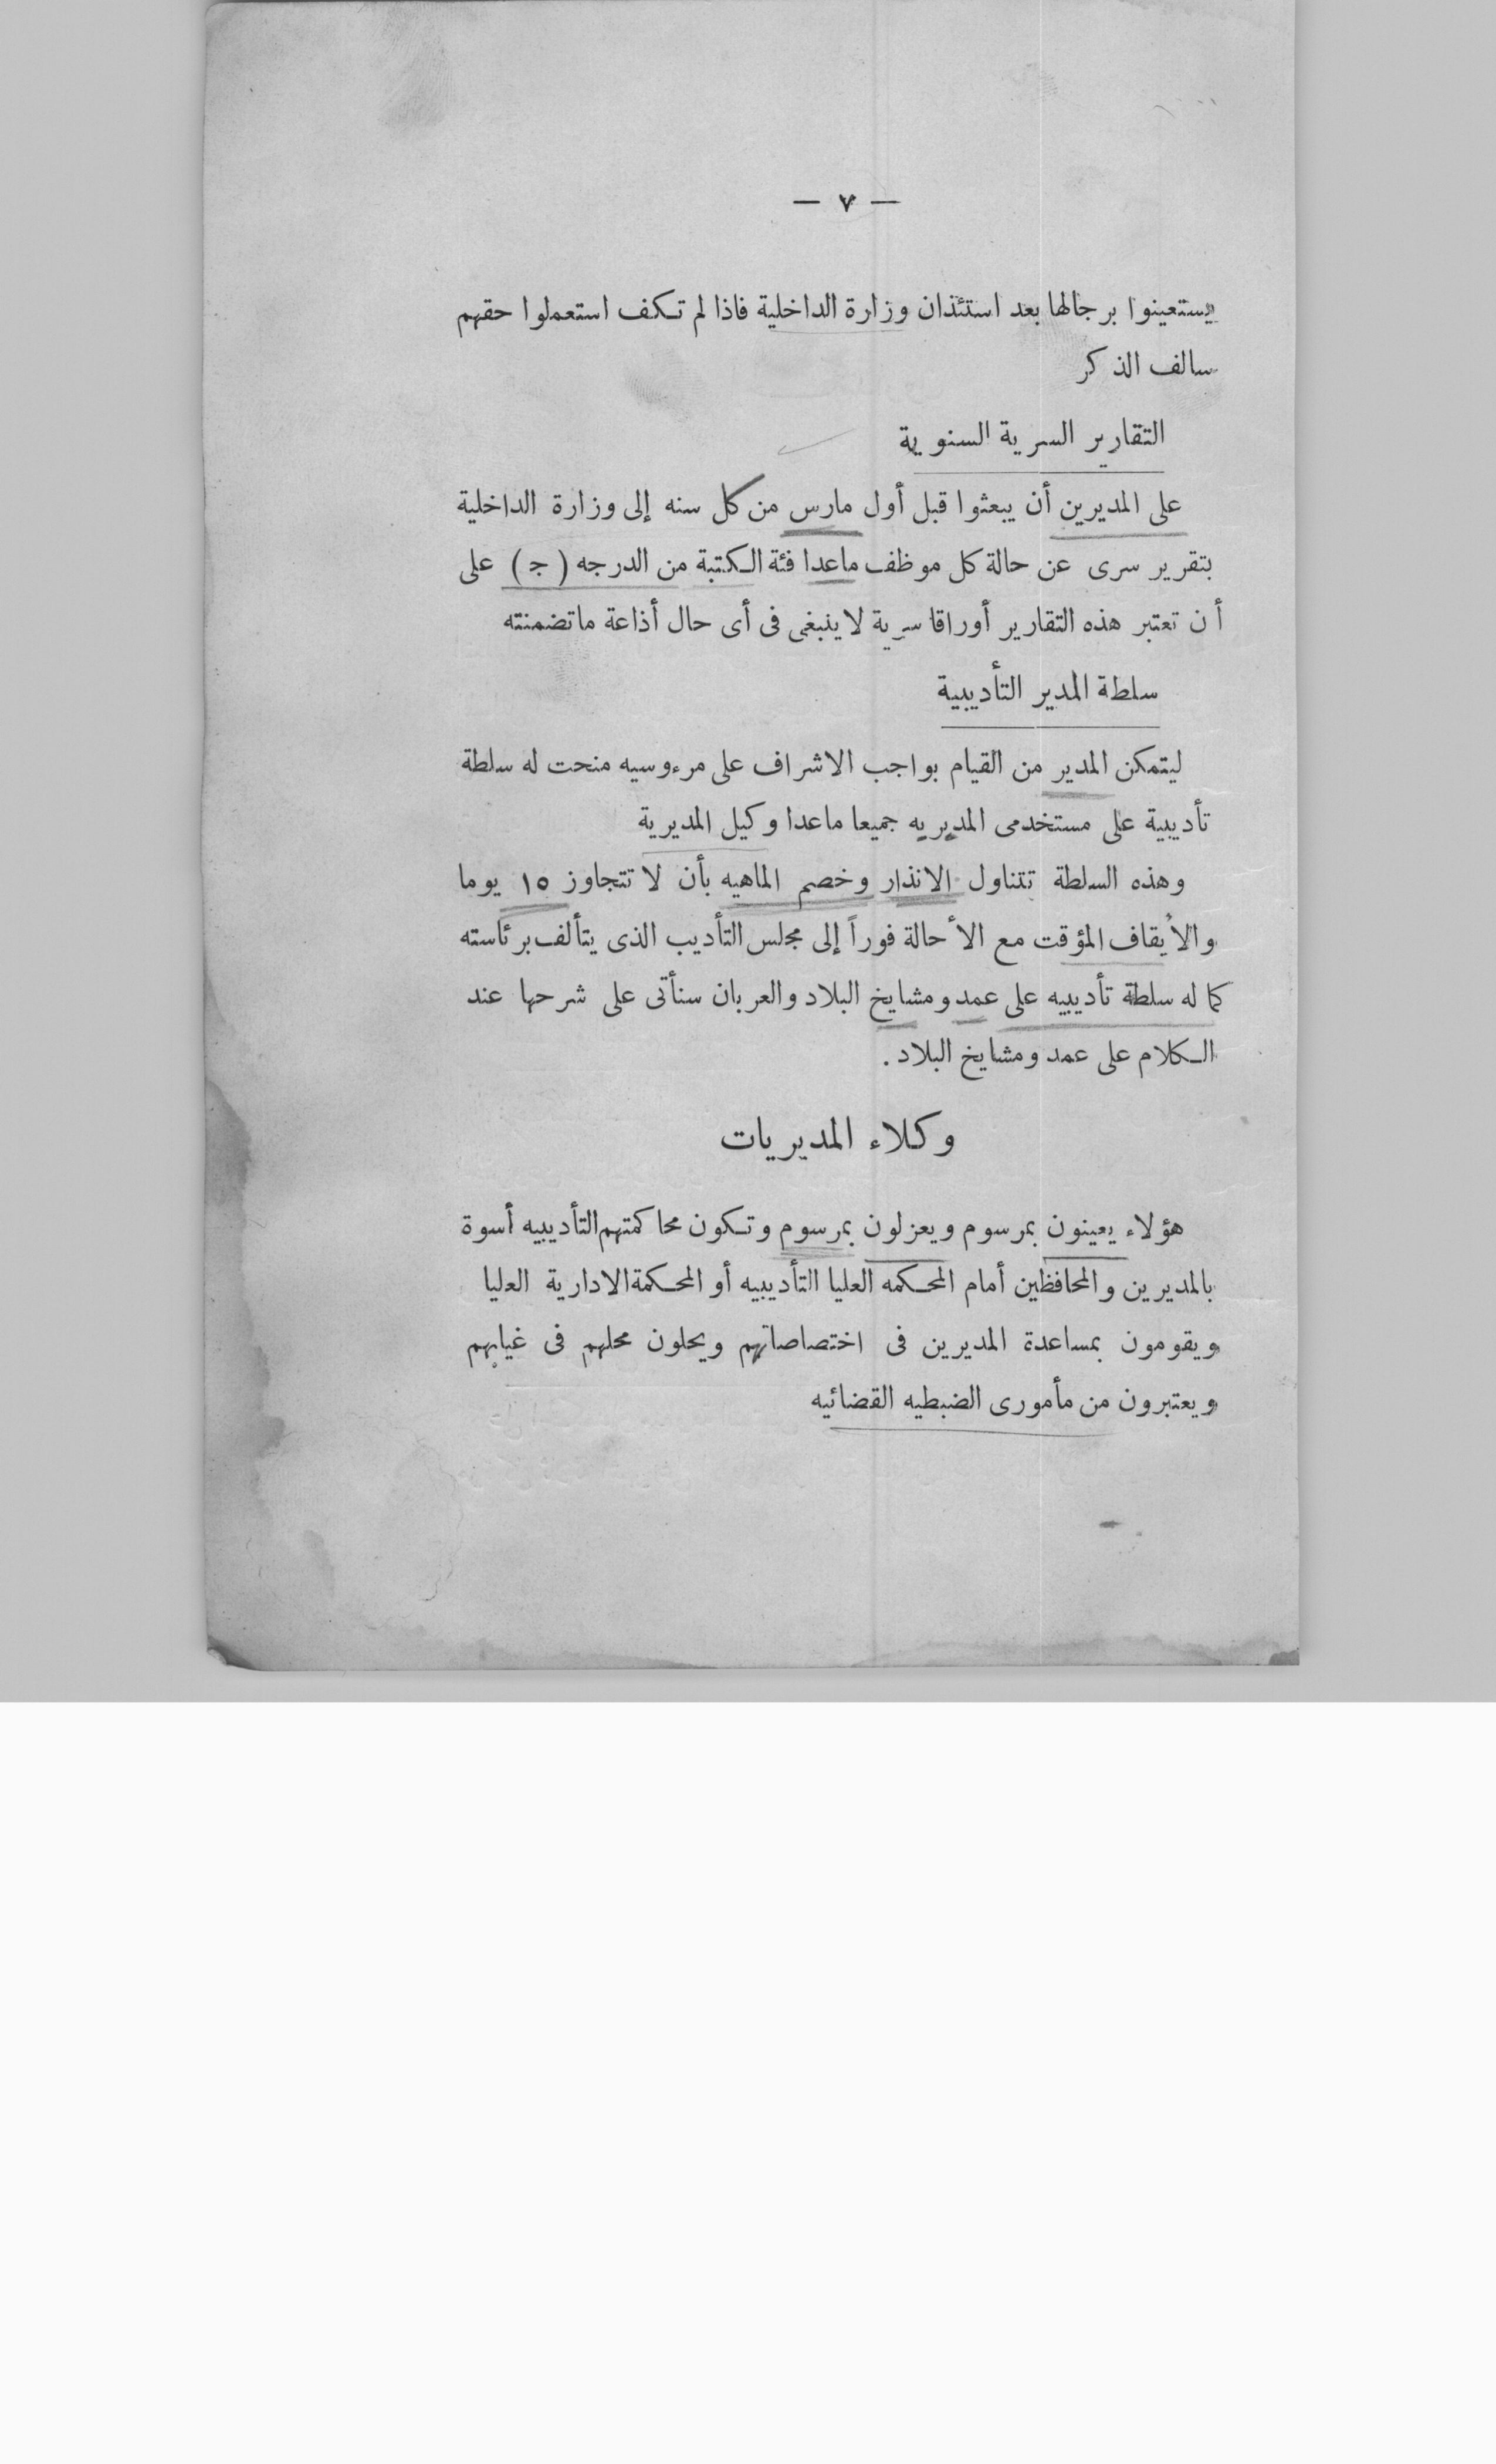 — ٧ —
يستعينوا برجالها بعد استئذان وزارة الداخلية فاذا لم تكف استعملوا حقهم
سالف الذكر
التقارير السرية السنوية
على المديرين أن يبعثوا قبل أول مارس من كل سنه إلى وزارة الداخلية
بتقرير سرى عن حالة كل موظف ماعدا فئة الكتبة من الدرجه ( ج ) على
أن تعتبر هذه التقارير أوراقا سرية لا ينبغى فى أى حال أذاعة ماتضمنته
سلطة المدير التأديبية
ليتمكن المدير من القيام بواجب الاشراف على مرءوسيه منحت له سلطة
تأديبية على مستخدمى المديريه جميعا ماعدا وكيل المديرية
وهذه السلطة تتناول الانذار وخصم الماهيه بأن لا تتجاوز ١٥ يوما
والأيقاف المؤقت مع الأحالة فوراً إلى مجلس التأديب الذى يتألف برئاسته
كما له سلطة تأديبيه على عمد ومشايخ البلاد والعربان سنأتى على شرحها عند
الكلام على عمد ومشايخ البلاد .
وكلاء المديريات
هؤلاء يعينون بمرسوم ويعزلون بمرسوم وتكون محاكمتهم التأديبيه أسوة
بالمديرين والمحافظين أمام المحكمه العليا التأديبيه أو المحكمة الادارية العليا
ويقومون بمساعدة المديرين فى اختصاصاتهم ويحلون محلهم فى غيابهم
ويعتبرون من مأمورى الضبطيه القضائيه